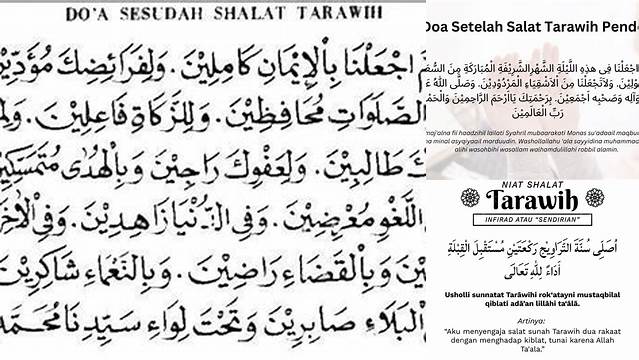 DO'A SESUDAH SHALAT TARAWIH
اجْعَلْنَا بِالْإِيْمَانِ كَامِلِيْنَ. وَلِفَرَائِضِكَ مُؤَدِّيْنَ
الصَّلَوَاتِ مُحَافِظِيْنَ. وَلِلزَّكَاةِ فَاعِلِيْنَ.
طَالِبِيْنَ. وَلِعَفْوِكَ رَاجِيْنَ وَبِالْهُدٰى مُتَمَسِّكِيْنَ
اللَّغْوِ مُعْرِضِيْنَ. وَفِى الدُّنْيَا زَاهِدِيْنَ. وَفِى
وَبِالْقَضَاءِ رَاضِيْنَ. وَبِالنَّعْمَاءِ شَاكِرِيْنَ
الْبَلَاءِ صَابِرِيْنَ وَتَحْتَ لِوَاءِ سَيِّدِنَا مُحَمَّدٍ
Doa Setelah Salat Tarawih
فِى هٰذِهِ اللَّيْلَةِ الشَّهْرِ الشَّرِيْفَةِ الْمُبَارَكَةِ مِنَ
وَلَاتَجْعَلْنَا مِنَ الْأَشْقِيَاءِ الْمَرْدُوْدِيْنَ. وَصَلَّى اللّٰهُ
وَآلِهِ وَصَحْبِهِ أَجْمَعِيْنَ. بِرَحْمَتِكَ يَاأَرْحَمَ الرَّاحِمِيْنَ
رَبِّ الْعَالَمِيْنَ
fii haadzihil lailati Syahril mubaarakati Monas su'adaail
minal asyqiyaail marduudin. Washollallahu 'ala sayyidina
alihi wasohbihi wasallam walhamdulillahi robbil alamin.
NIAT SHALAT
Tarawih
INFIRAD ATAU "SENDIRIAN"
أُصَلِّى سُنَّةَ التَّرَاوِيْحِ رَكْعَتَيْنِ مُسْتَقْبِلَ الْقِبْلَةِ
أَدَاءً لِلّٰهِ تَعَالَى
Usholli sunnatat Tarāwīhi rok'atayni mustaqbilal
qiblati adā'an lillāhi ta'ālā.
Artinya:
"Aku menyengaja salat sunah Tarawih dua rakaat
dengan menghadap kiblat, tunai karena Allah
Ta'ala."